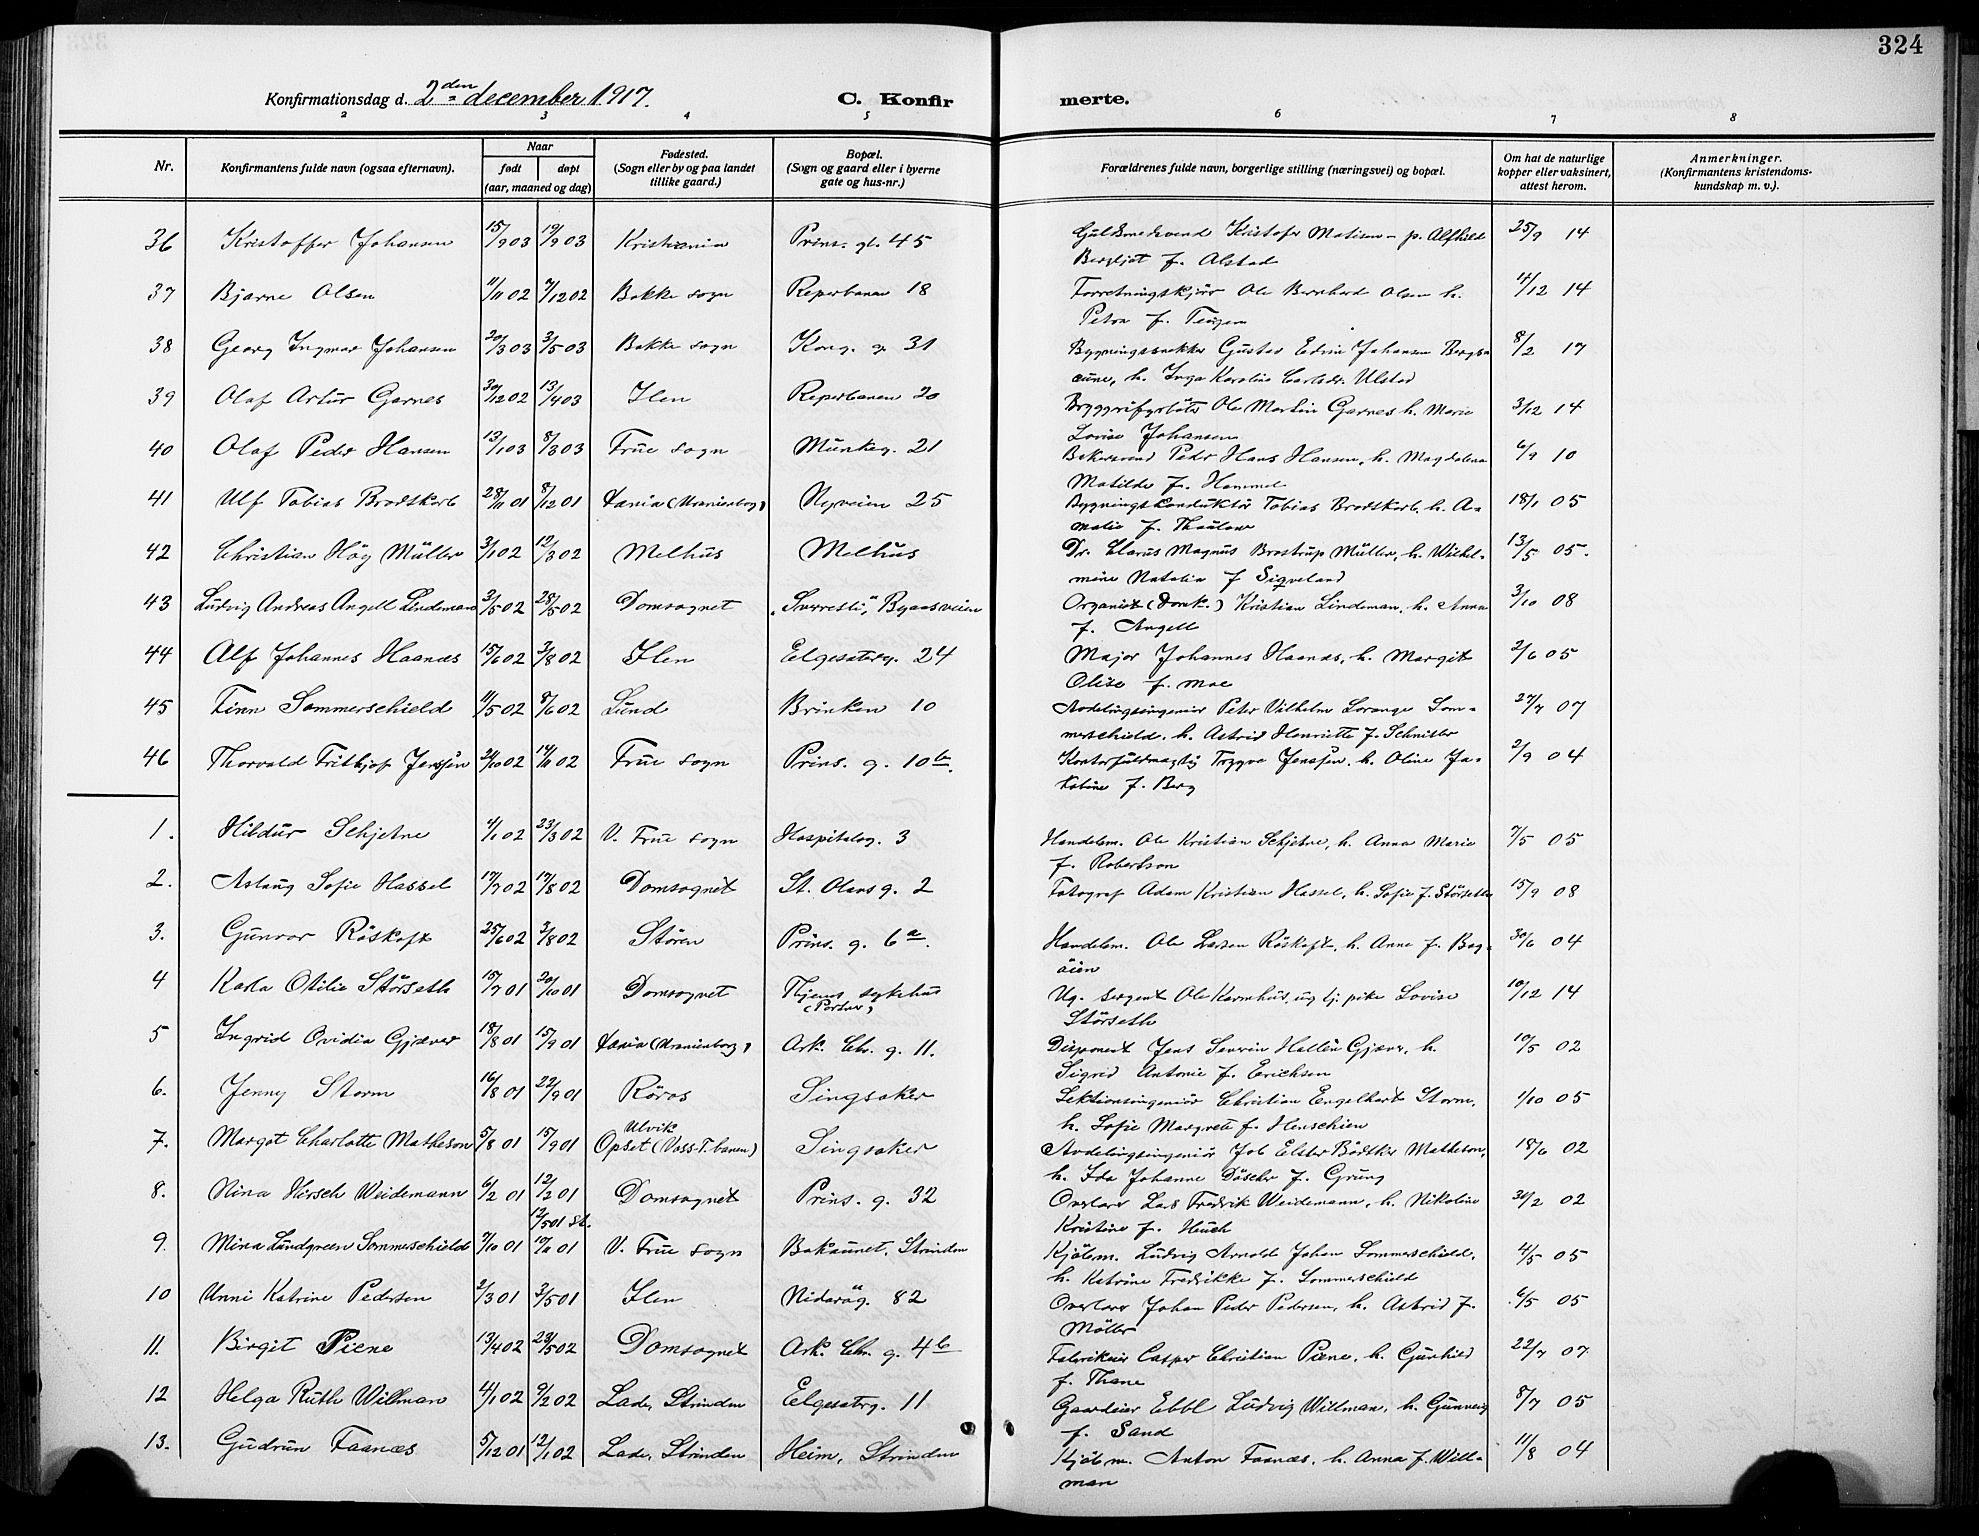 324
Konfirmationsdag d. 2den december 1917. C. Konfirmerte.
2 3 4 5 6 7 8
Nr. Konfirmantens fulde navn (ogsaa efternavn). Naar født døpt (aar, maaned og dag) Fødested. (Sogn eller by og paa landet tillike gaard.) Bopæl. (Sogn og gaard eller i byerne gate og hus-nr.) Forældrenes fulde navn, borgerlige stilling (næringsvei) og bopæl. Om hat de naturlige kopper eller vaksinert, attest herom. Anmerkninger. (Konfirmantens kristendomskundskap m. v.).
36 Kristoffer Johansen 15/9 03 19/9 03 Kristiania Prins. gt. 45 Guldsmedsvend Kristofer Matisen - p. Alfhild 25/9 14
Bergljot f. Alstad
37 Bjarne Olsen 11/11 02 7/12 02 Bakke sogn Reperbanen 18 Forretningskjør Ole Bernhard Olsen h. 4/12 14
Petra f.
38 Georg Ingmar Johansen 20/3 03 3/5 03 Bakke sogn Kong. g. 31 Bygningssnekker Gustav Edvin Johansen 8/2 17
h. Inga Karoline Carlsdr. Ulstad
39 Olaf Artur Garnes 30/12 02 13/4 03 Ilen Reperbanen 20 Ole Martin Garnes h. Marie 3/12 14
Lovise Johansen
40 Olaf Peder Hansen 13/1 03 8/3 03 Frue sogn Munkeg. 21 Bakersvend Peder Hans Hansen, h. Magdalena 6/9 10
Matilde f. Hammel
41 Ulf Tobias Brodtkorb 28/11 01 8/12 01 X.ania (Uranienborg) Nyveien 25 Bygningskonduktör Tobias Brodtkorb, h. A= 18/1 05
malie f. Thaulow
42 Christian Höy Müller 3/1 02 12/3 02 Melhus Melhus Dr. Clarus Magnus Brostrup Müller, h. Wilhel= 13/5 05.
mine Natalia f Siqveland
43 Ludvig Andreas Angell Lindeman 3/5 02 28/5 02 Domsognet "Sverresli", Byaasveien Organist (Domk.) Kristian Lindeman, h. Anna 3/10 08
f. Angell
44 Alf Johannes Haanæs 15/6 02 3/8 02 Ilen Elgesæterg. 24 Major Johannes Haanæs, h. Margit 2/6 05
Olise f. Moe
45 Finn Sommerschield 11/5 02 8/6 02 Lund Brinken 10 Avdelingsingeniör Peter Vilhelm Lorange Som= 27/7 07
merschield, h. Astrid Henriette f. Schnitler
46 Thorvald Frithjof Jenssen 24/10 02 14/11 02 Frue sogn Prins. g. 10b. Kontorfuldmægtig Trygve Jenssen, h. Oline Ja= 2/9 04
kobine f. Berg
1. Hildur Schjetne 4/1 02 23/3 02 V. Frue sogn Hospitalsg. 3 Handelsm. Ole Kristian Schjetne, h. Anna Marie 7/5 05
f. Robertson
2. Aslaug Sofie Hassel 17/7 02 17/8 02 Domsognet St. Olavs g. 2 Fotograf Adam Kristian Hassel, h. Sofie f. Störseth 15/9 08
3. Gunvor Röskaft 25/6 02 3/8 02 Stören Prins. g. 6a. Handelsm. Ole Larsen Röskaft, h. Anne f. Bog= 30/6 04
öien
4 Karla Otilie Störseth 15/7 01 20/10 01 Domsognet Thjems sykehus Ug. Sergent Ole Karmhus, ug tj. pike Lovise 10/12 14
(Portner)
Störseth
5 Ingrid Ovidia Gjæver 18/8 01 15/9 01 X.ania (Uranienborg) Ark. Chr. g. 11. Disponent Jens Severin Hallèn Gjæver, h. 10/5 02
Sigrid Antonie f. Erichsen
6. Jenny Storm 16/8 01 22/9 01 Röros Singsaker Sektionsingeniör Christian Engelhart Storm, 1/10 05
h. Sofie Margrete f. Henschien
7. Margot Charlotte Matheson 5/8 01 15/9 01 Ulvik Opset (Voss-T.banen) Singsaker Avdelingsingeniör Job Elster Bödtker Matheson, 18/6 02
h. Ida Johanne Döscher f. Grung
8. Nina Hirsch Weidemann 6/2 01 12/2 01 Domsognet Prins. g. 32 Overlærer Lars Fredrik Weidemann, h. Nikoline 24/2 02
12/5 01 st.
Kristine f. Huch
9. Mina Lundgreen Sommerschield 7/10 01 10/11 01 V. Frue sogn Bakaunet, Strinden Kjöbm. Ludvig Arnold Johan Sommerschield, 4/5 05
h. Katrine Fredrikke f. Sommerschield
10 Unni Katrine Pedersen 2/3 01 3/5 01 Ilen Nidarög. 82 Overlærer Johan Peder Pedersen, h. Astrid f. 6/5 05
Möller
11. Birgit Piene 13/4 02 23/5 02 Domsognet Ark. Chr. g. 4b Fabrikeier Casper Christian Piene, h. Gunhild 22/7 07
f. Thane
12 Helga Ruth Willman 4/1 02 9/2 02 Lade, Strinden Elgesæterg. 11 Gaardeier Ebbl Ludvig Willman, h. Gunverg 8/7 05
f. Sand
13. Gudrun Faanæs 5/12 01 12/1 02 Lade, Strinden Heim, Strinden Kjöbm. Anton Faanæs, h. Anna f. Will= 11/8 04
man